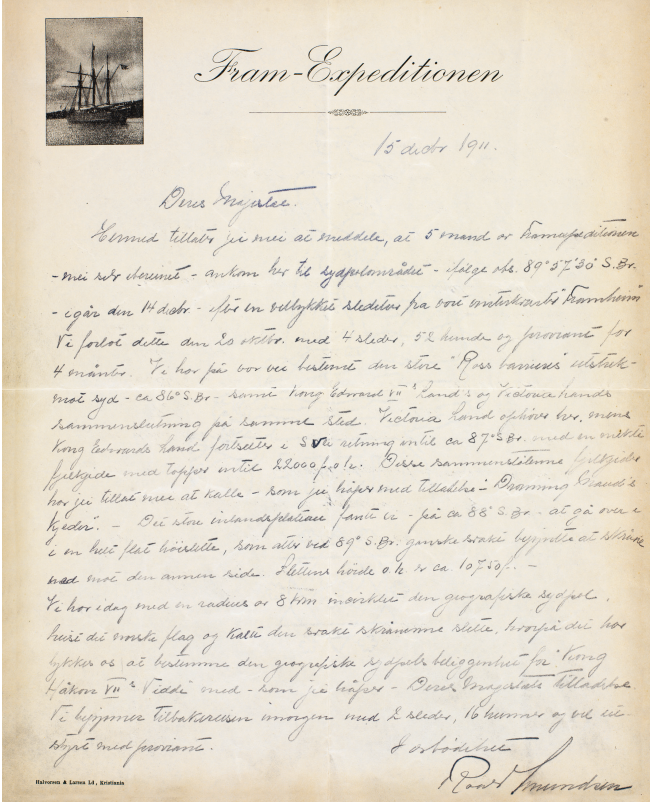 Fram-Expeditionen
15 decbr 1911.
Deres Majestæt.
Hermed tillater jei mei at meddele, at 5 mand av Framexpeditionen
- mei selv iberegnet - ankom her til sydpolområdet - ifölge obs. 89° 57' 30" S.Br.
- igår den 14 decbr. - efter en vellykket sledetur fra vort vinterkvarter "Framheim".
Vi forlot dette den 20 oktbr. med 4 sleder, 52 hunde og proviant for
4 måntr. Vi har på vor vei bestemt den store "Ross barrieres" utstrekn.
mot syd - ca 86° S.Br - samt Kong Edward VII's Land's og Victoria lands
sammenslutning på samme sted. Victoria Land ophörer her, mens
Kong Edwards land fortsetter i SV retning intil ca 87° S.Br. med en mektig
fjelkjede med topper intil 22000 f.o.h. Disse sammenslutnne fjelkjeder
har jei tillat mei at kalle - som jei håper med tilladelse - "Dronning Maud's
Kjeder". - Det store inlandsplateau fant vi - på ca 88° S.Br - at gå over i
i en helt flat höislette, som atter ved 89° S.Br. ganske svakt begyndte at skråne
ned mot den annen side. Slettens höide o.h. er ca. 10750 f. -
Vi har idag med en radius av 8 km incirklet den geografiske sydpol,
heist det norske flag og kalt den svakt skrånenne slette, hvorpå det har
lykkes os at bestemme den geografiske sydpols beliggenhet for Kong
Håkon VII's Vidde med - som jei håper - Deres Majestæts tilladelse.
Vi begynner tilbakereisen imorgen med 2 sleder, 16 hunner og vel ut-
styrt med proviant.
I ærbödighet
Roald Amundsen
Halvorsen & Larsen Ld, Kristiania